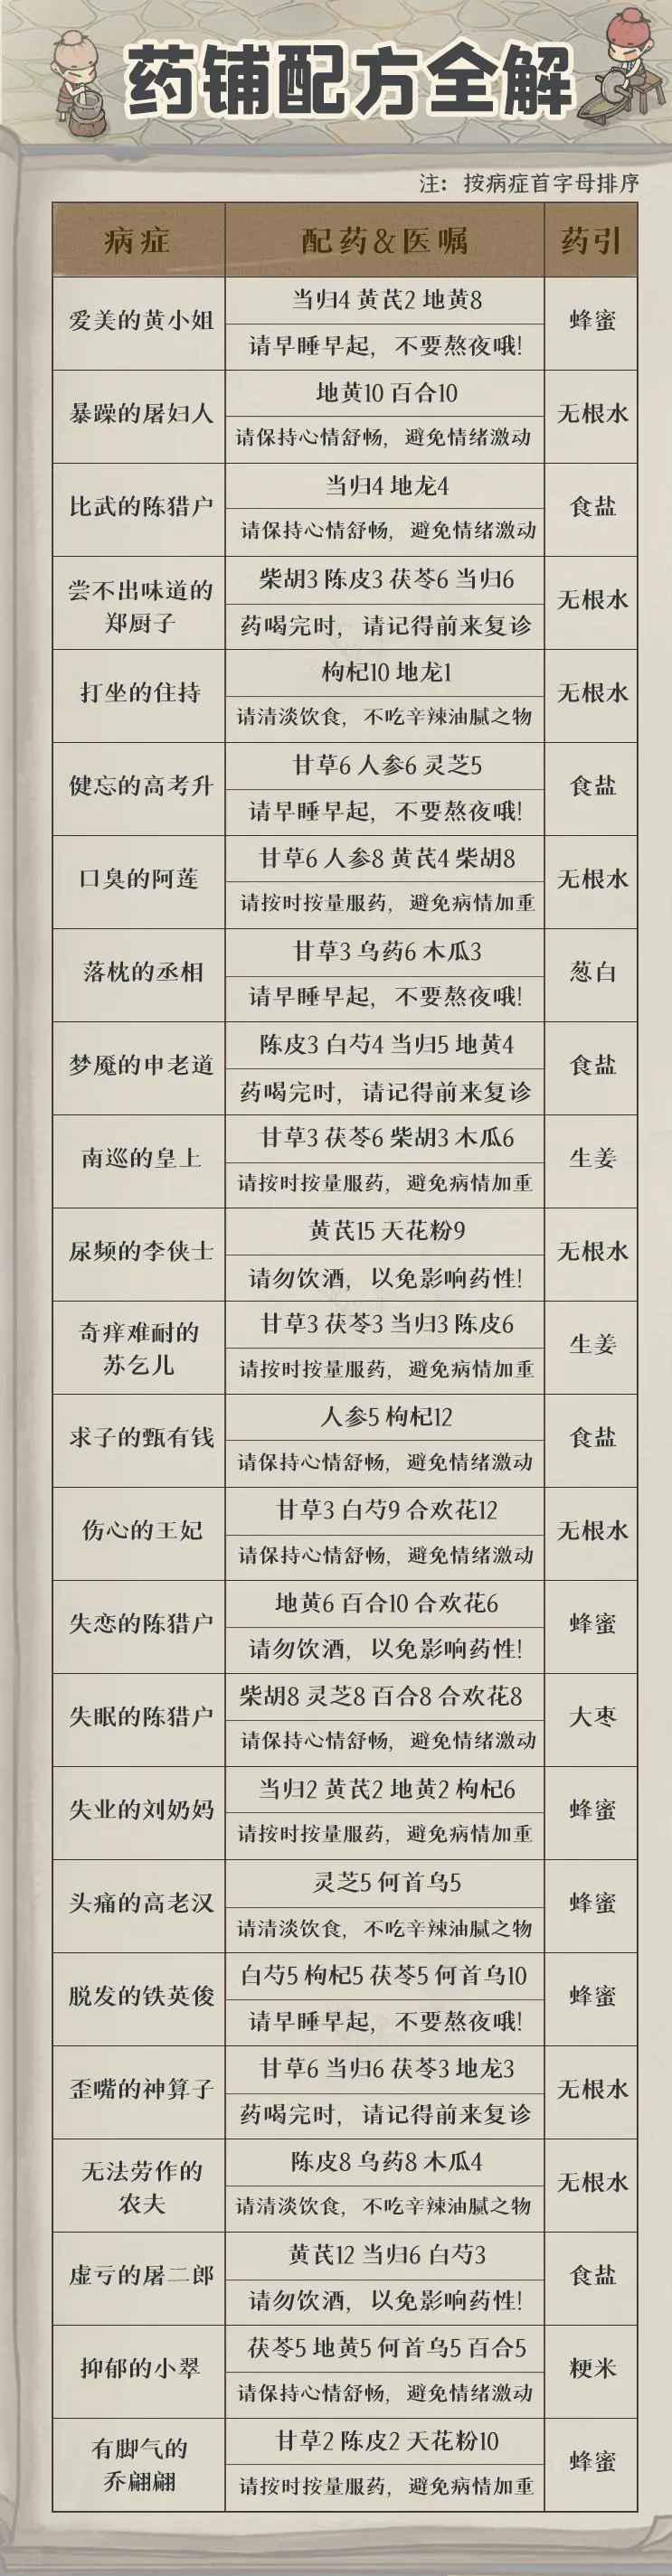 药铺配方全解
注：按病症首字母排序
病症
配药&医嘱
药引
爱美的黄小姐
当归4 黄芪2 地黄8
请早睡早起，不要熬夜哦!
蜂蜜
暴躁的屠妇人
地黄10 百合10
请保持心情舒畅，避免情绪激动
无根水
比武的陈猎户
当归4 地龙4
请保持心情舒畅，避免情绪激动
食盐
尝不出味道的
郑厨子
柴胡3 陈皮3 茯苓6 当归6
药喝完时，请记得前来复诊
无根水
打坐的住持
枸杞10 地龙1
请清淡饮食，不吃辛辣油腻之物
无根水
健忘的高考升
甘草6 人参6 灵芝5
请早睡早起，不要熬夜哦!
食盐
口臭的阿莲
甘草6 人参8 黄芪4 柴胡8
请按时按量服药，避免病情加重
无根水
落枕的丞相
甘草3 乌药6 木瓜3
请早睡早起，不要熬夜哦!
葱白
梦魇的申老道
陈皮3 白芍4 当归5 地黄4
药喝完时，请记得前来复诊
食盐
南巡的皇上
甘草3 茯苓6 柴胡3 木瓜6
请按时按量服药，避免病情加重
生姜
尿频的李侠士
黄芪15 天花粉9
请勿饮酒，以免影响药性!
无根水
奇痒难耐的
苏乞儿
甘草3 茯苓3 当归3 陈皮6
请按时按量服药，避免病情加重
生姜
求子的甄有钱
人参5 枸杞12
请保持心情舒畅，避免情绪激动
食盐
伤心的王妃
甘草3 白芍9 合欢花12
请保持心情舒畅，避免情绪激动
无根水
失恋的陈猎户
地黄6 百合10 合欢花6
请勿饮酒，以免影响药性!
蜂蜜
失眠的陈猎户
柴胡8 灵芝8 百合8 合欢花8
请保持心情舒畅，避免情绪激动
大枣
失业的刘奶妈
当归2 黄芪2 地黄2 枸杞6
请按时按量服药，避免病情加重
蜂蜜
头痛的高老汉
灵芝5 何首乌5
请清淡饮食，不吃辛辣油腻之物
蜂蜜
脱发的铁英俊
白芍5 枸杞5 茯苓5 何首乌10
请早睡早起，不要熬夜哦!
蜂蜜
歪嘴的神算子
甘草6 当归6 茯苓3 地龙3
药喝完时，请记得前来复诊
无根水
无法劳作的
农夫
陈皮8 乌药8 木瓜4
请清淡饮食，不吃辛辣油腻之物
无根水
虚亏的屠二郎
黄芪12 当归6 白芍3
请勿饮酒，以免影响药性!
食盐
抑郁的小翠
茯苓5 地黄5 何首乌5 百合5
请保持心情舒畅，避免情绪激动
粳米
有脚气的
乔翩翩
甘草2 陈皮2 天花粉10
请按时按量服药，避免病情加重
蜂蜜